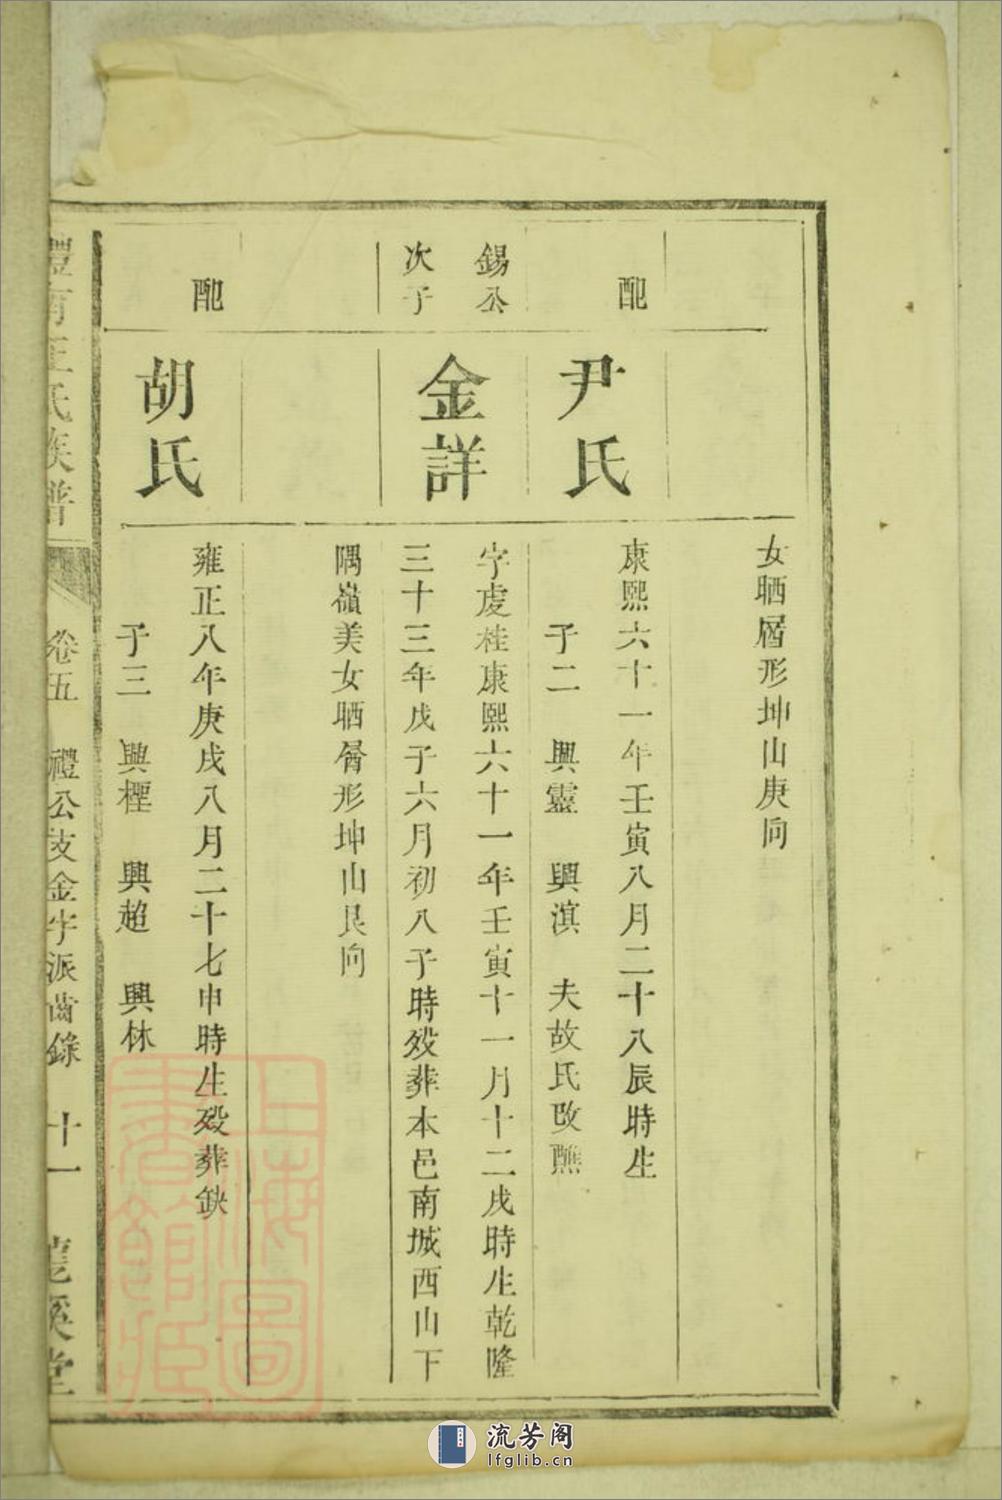 女晒腎形坤山庚向
配
尹氏
康熙六十一年壬寅八月二十八辰時生
子二 興靈 興滇 夫故氏改醮
錫公
次子
金詳
字虔桂康熙六十一年壬寅十一月十二戌時生乾隆
三十三年戊子六月初八子時歿葬本邑南城西山下
隅嶺美女晒腎形坤山艮向
配
胡氏
雍正八年庚戌八月二十七申時生歿葬缺
子三 興檉 興超 興林
澧南王氏族譜
卷五 禮公支金字派齒錄 十一 龍溪堂
上海圖
書館藏
流芳阁
lfglib.cn